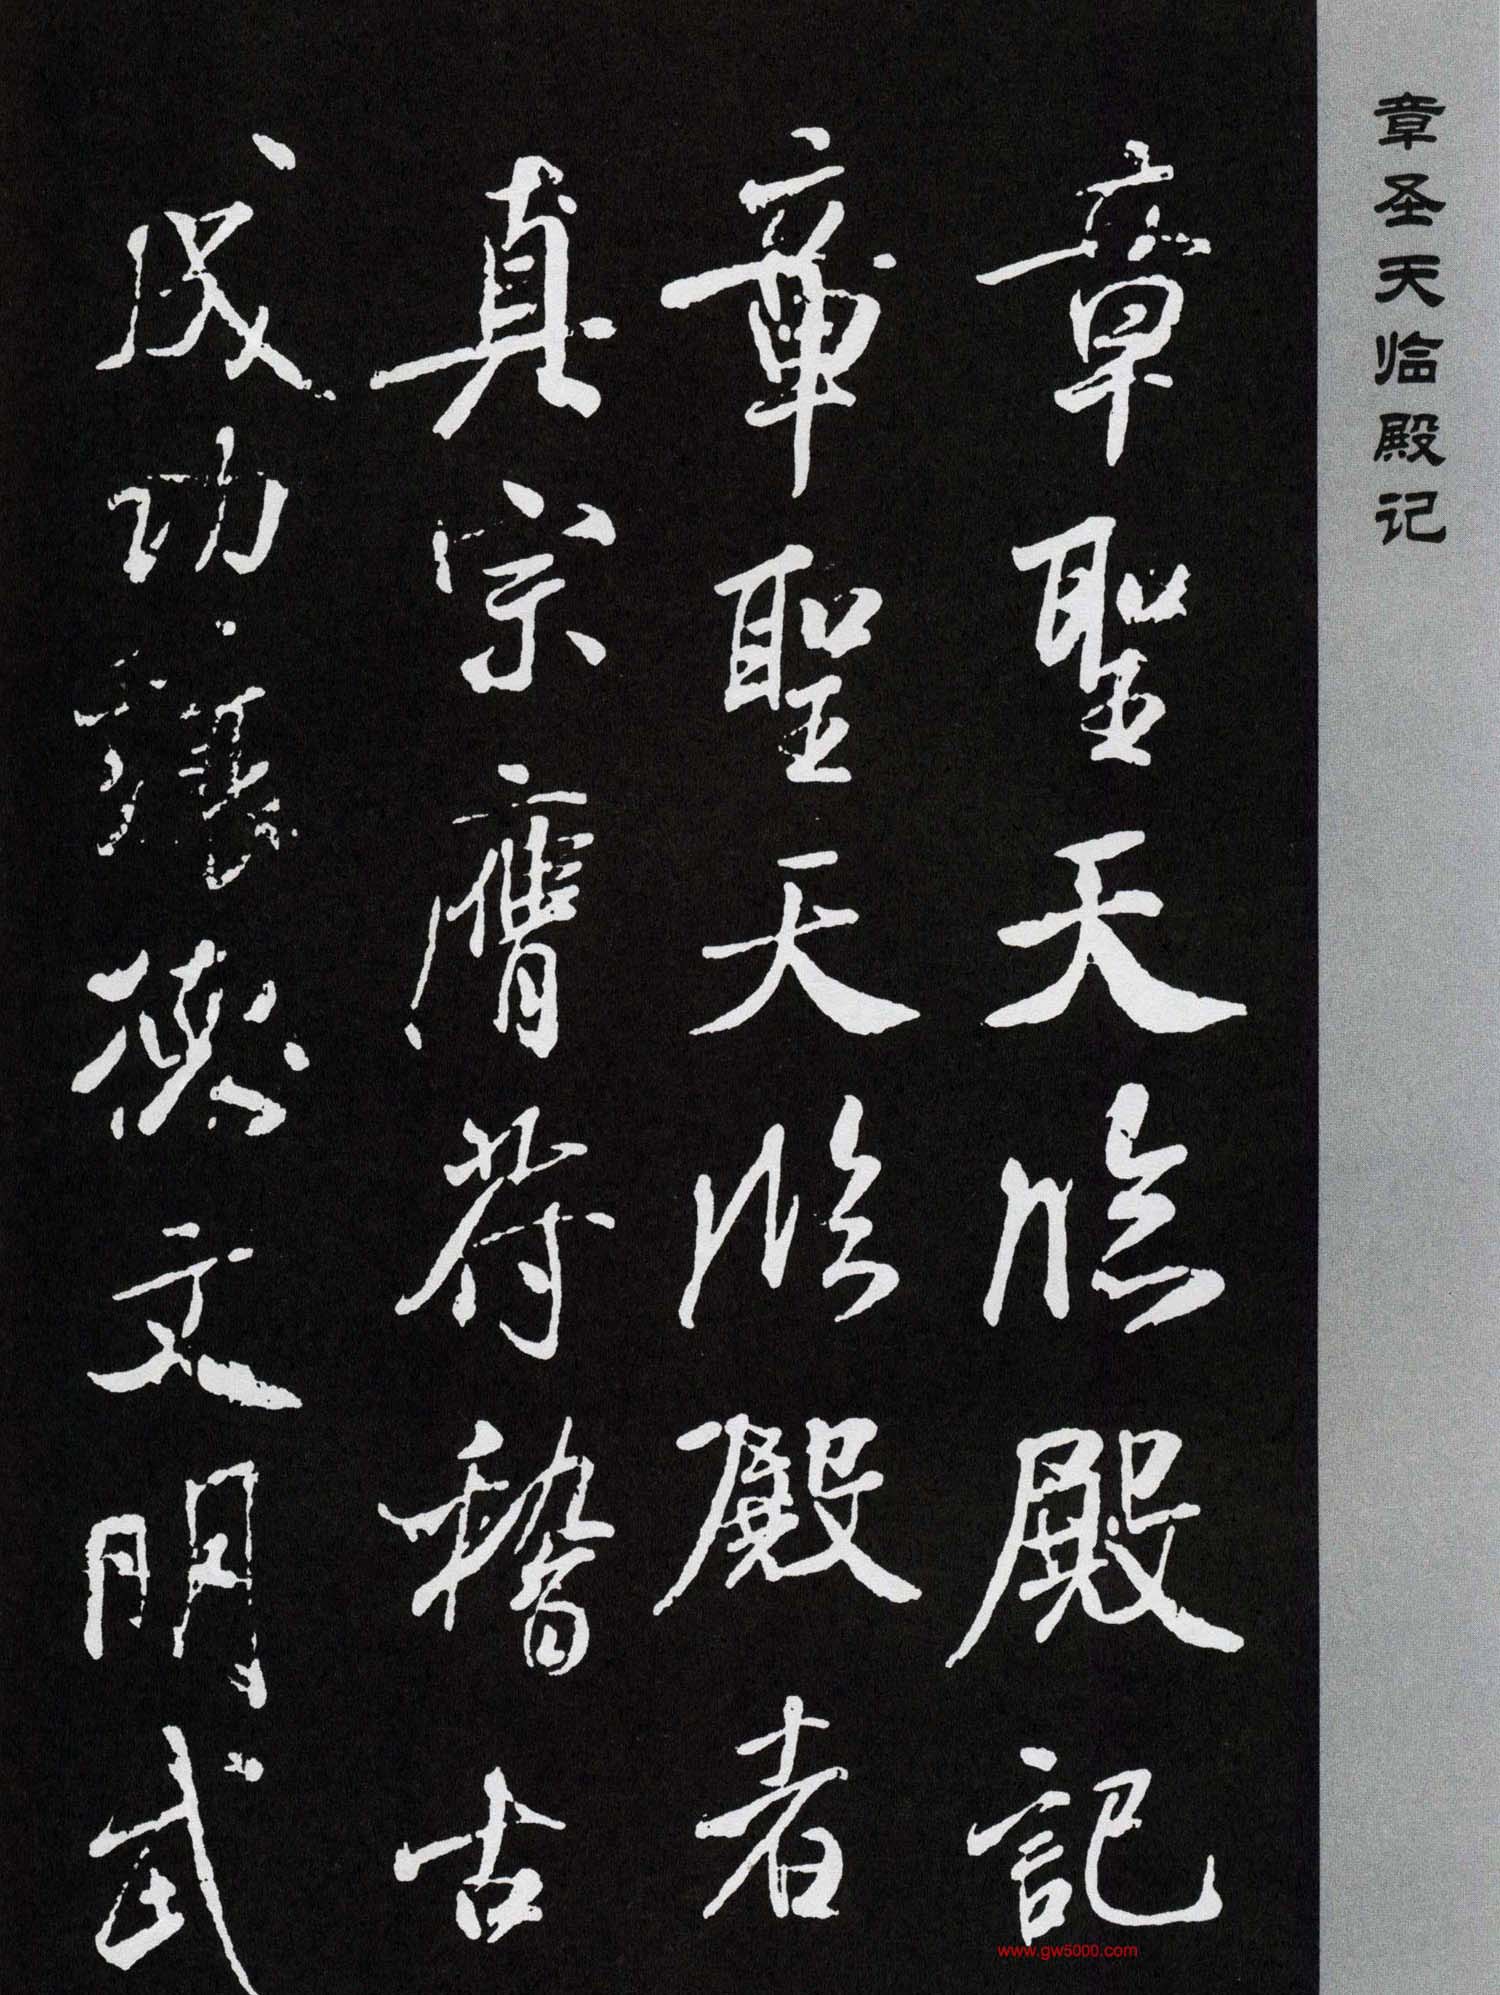 章圣天临殿记
章聖天臨殿記
章聖天臨殿者
真宗膺符稽古
成功讓德文明武
www.gw5000.com